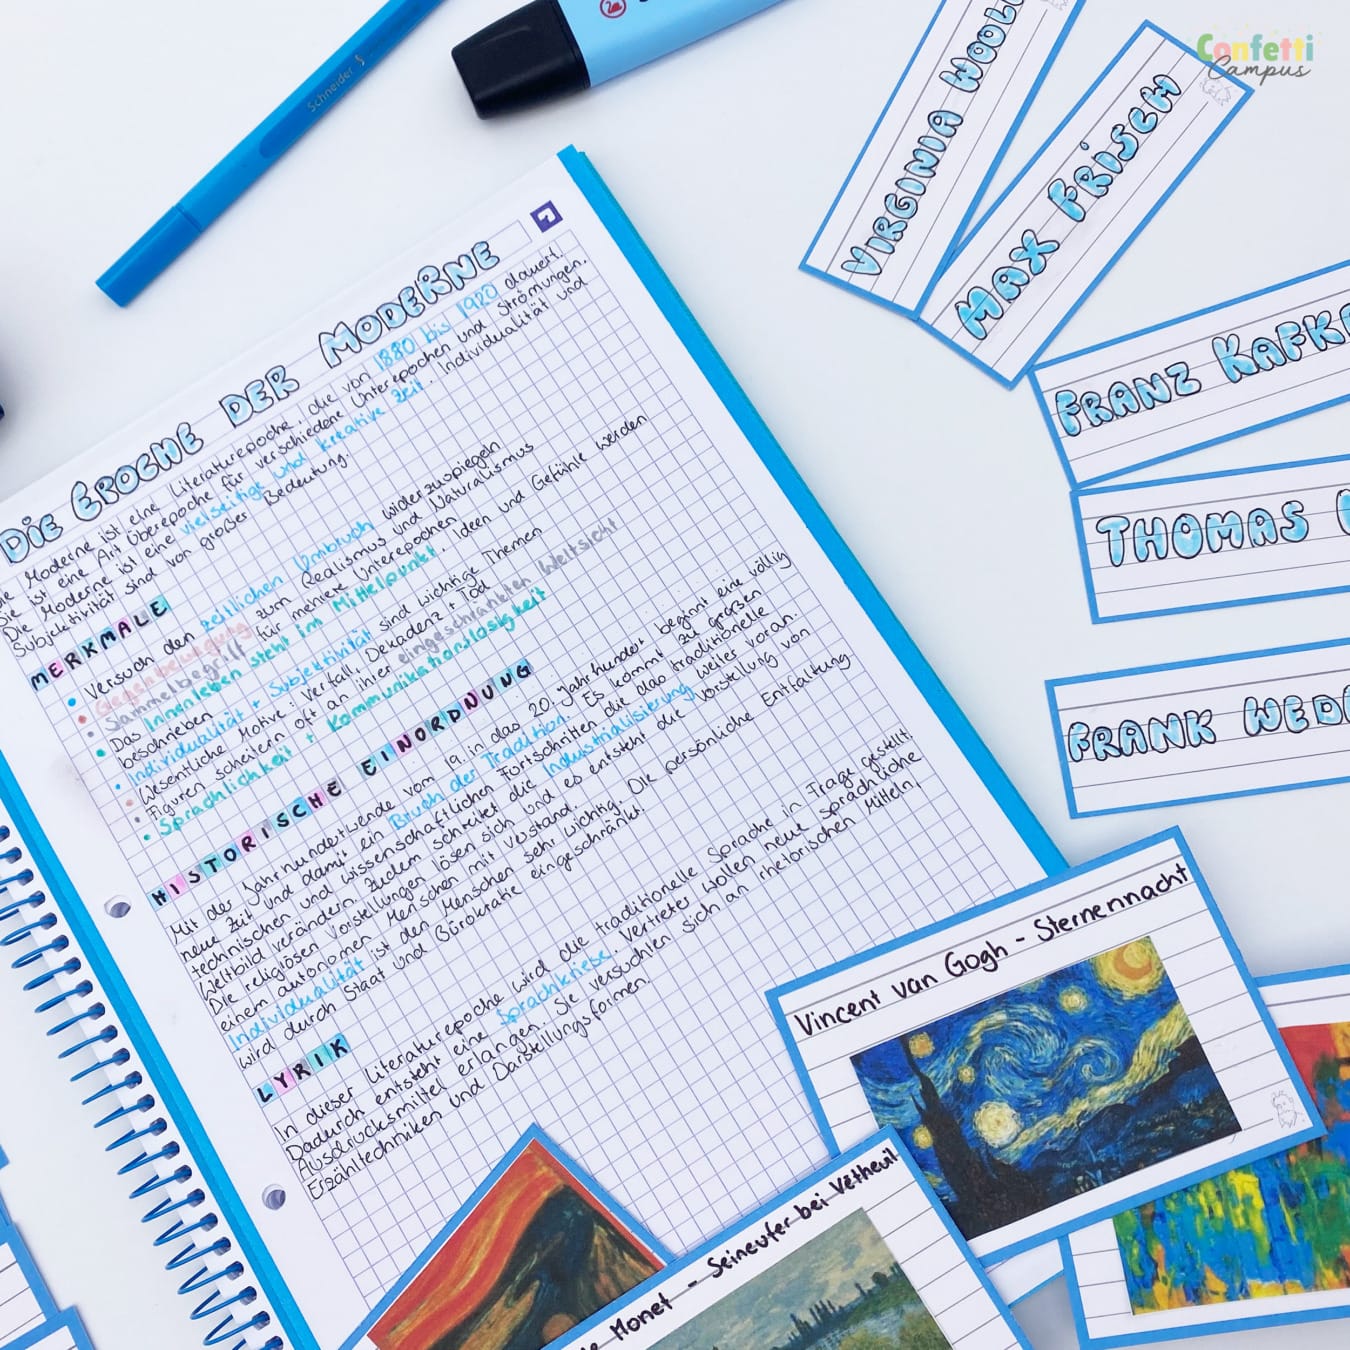 Confetti
Campus
Schneider
VIRGINIA WOOL
MAX FRISCH
FRANZ KAFK
THOMAS
FRANK WED
DIE EPOCHE DER MODERNE
Moderne ist eine Literaturepoche, die von 1880 bis 1920 dauert.
Sie ist eine Art Überepoche für verschiedene Unterepochen und Strömungen.
Die Moderne ist eine vielseitige und kreative Zeit. Individualität und
Subjektivität sind von großer Bedeutung.
MERKMALE
Versuch den zeitlichen Umbruch widerzuspiegeln
Gegenbewegung zum Realismus und Naturalismus
Sammelbegriff für mehrere Unterepochen
Das Innenleben steht im Mittelpunkt. Ideen und Gefühle werden
beschrieben
Individualität + Subjektivität sind wichtige Themen
Wesentliche Motive: Verfall, Dekadenz + Tod
Figuren scheitern oft an ihrer eingeschränkten Weltsicht
Sprachlichkeit + Kommunikationslosigkeit
HISTORISCHE EINORDNUNG
Mit der Jahrhundertwende vom 19. in das 20. Jahrhundert beginnt eine völlig
neue Zeit und damit ein Bruch der Tradition. Es kommt zu großen
technischen und wissenschaftlichen Fortschritten die das traditionelle
Weltbild verändern. Zudem schreitet die Industrialisierung weiter voran.
Die religiösen Vorstellungen lösen sich und es entsteht die Vorstellung von
einem autonomen Menschen mit Verstand.
Individualität ist den Menschen sehr wichtig. Die persönliche Entfaltung
wird durch Staat und Bürokratie eingeschränkt.
LYRIK
In dieser Literaturepoche wird die traditionelle Sprache in Frage gestellt.
Dadurch entsteht eine Sprachkriese. Vertreter wollen neue sprachliche
Ausdrucksmittel erlangen. Sie versuchten sich an rhetorischen Mitteln,
Erzähltechniken und Darstellungsformen.
Vincent van Gogh - Sternennacht
Monet - Seineufer bei Vétheuil